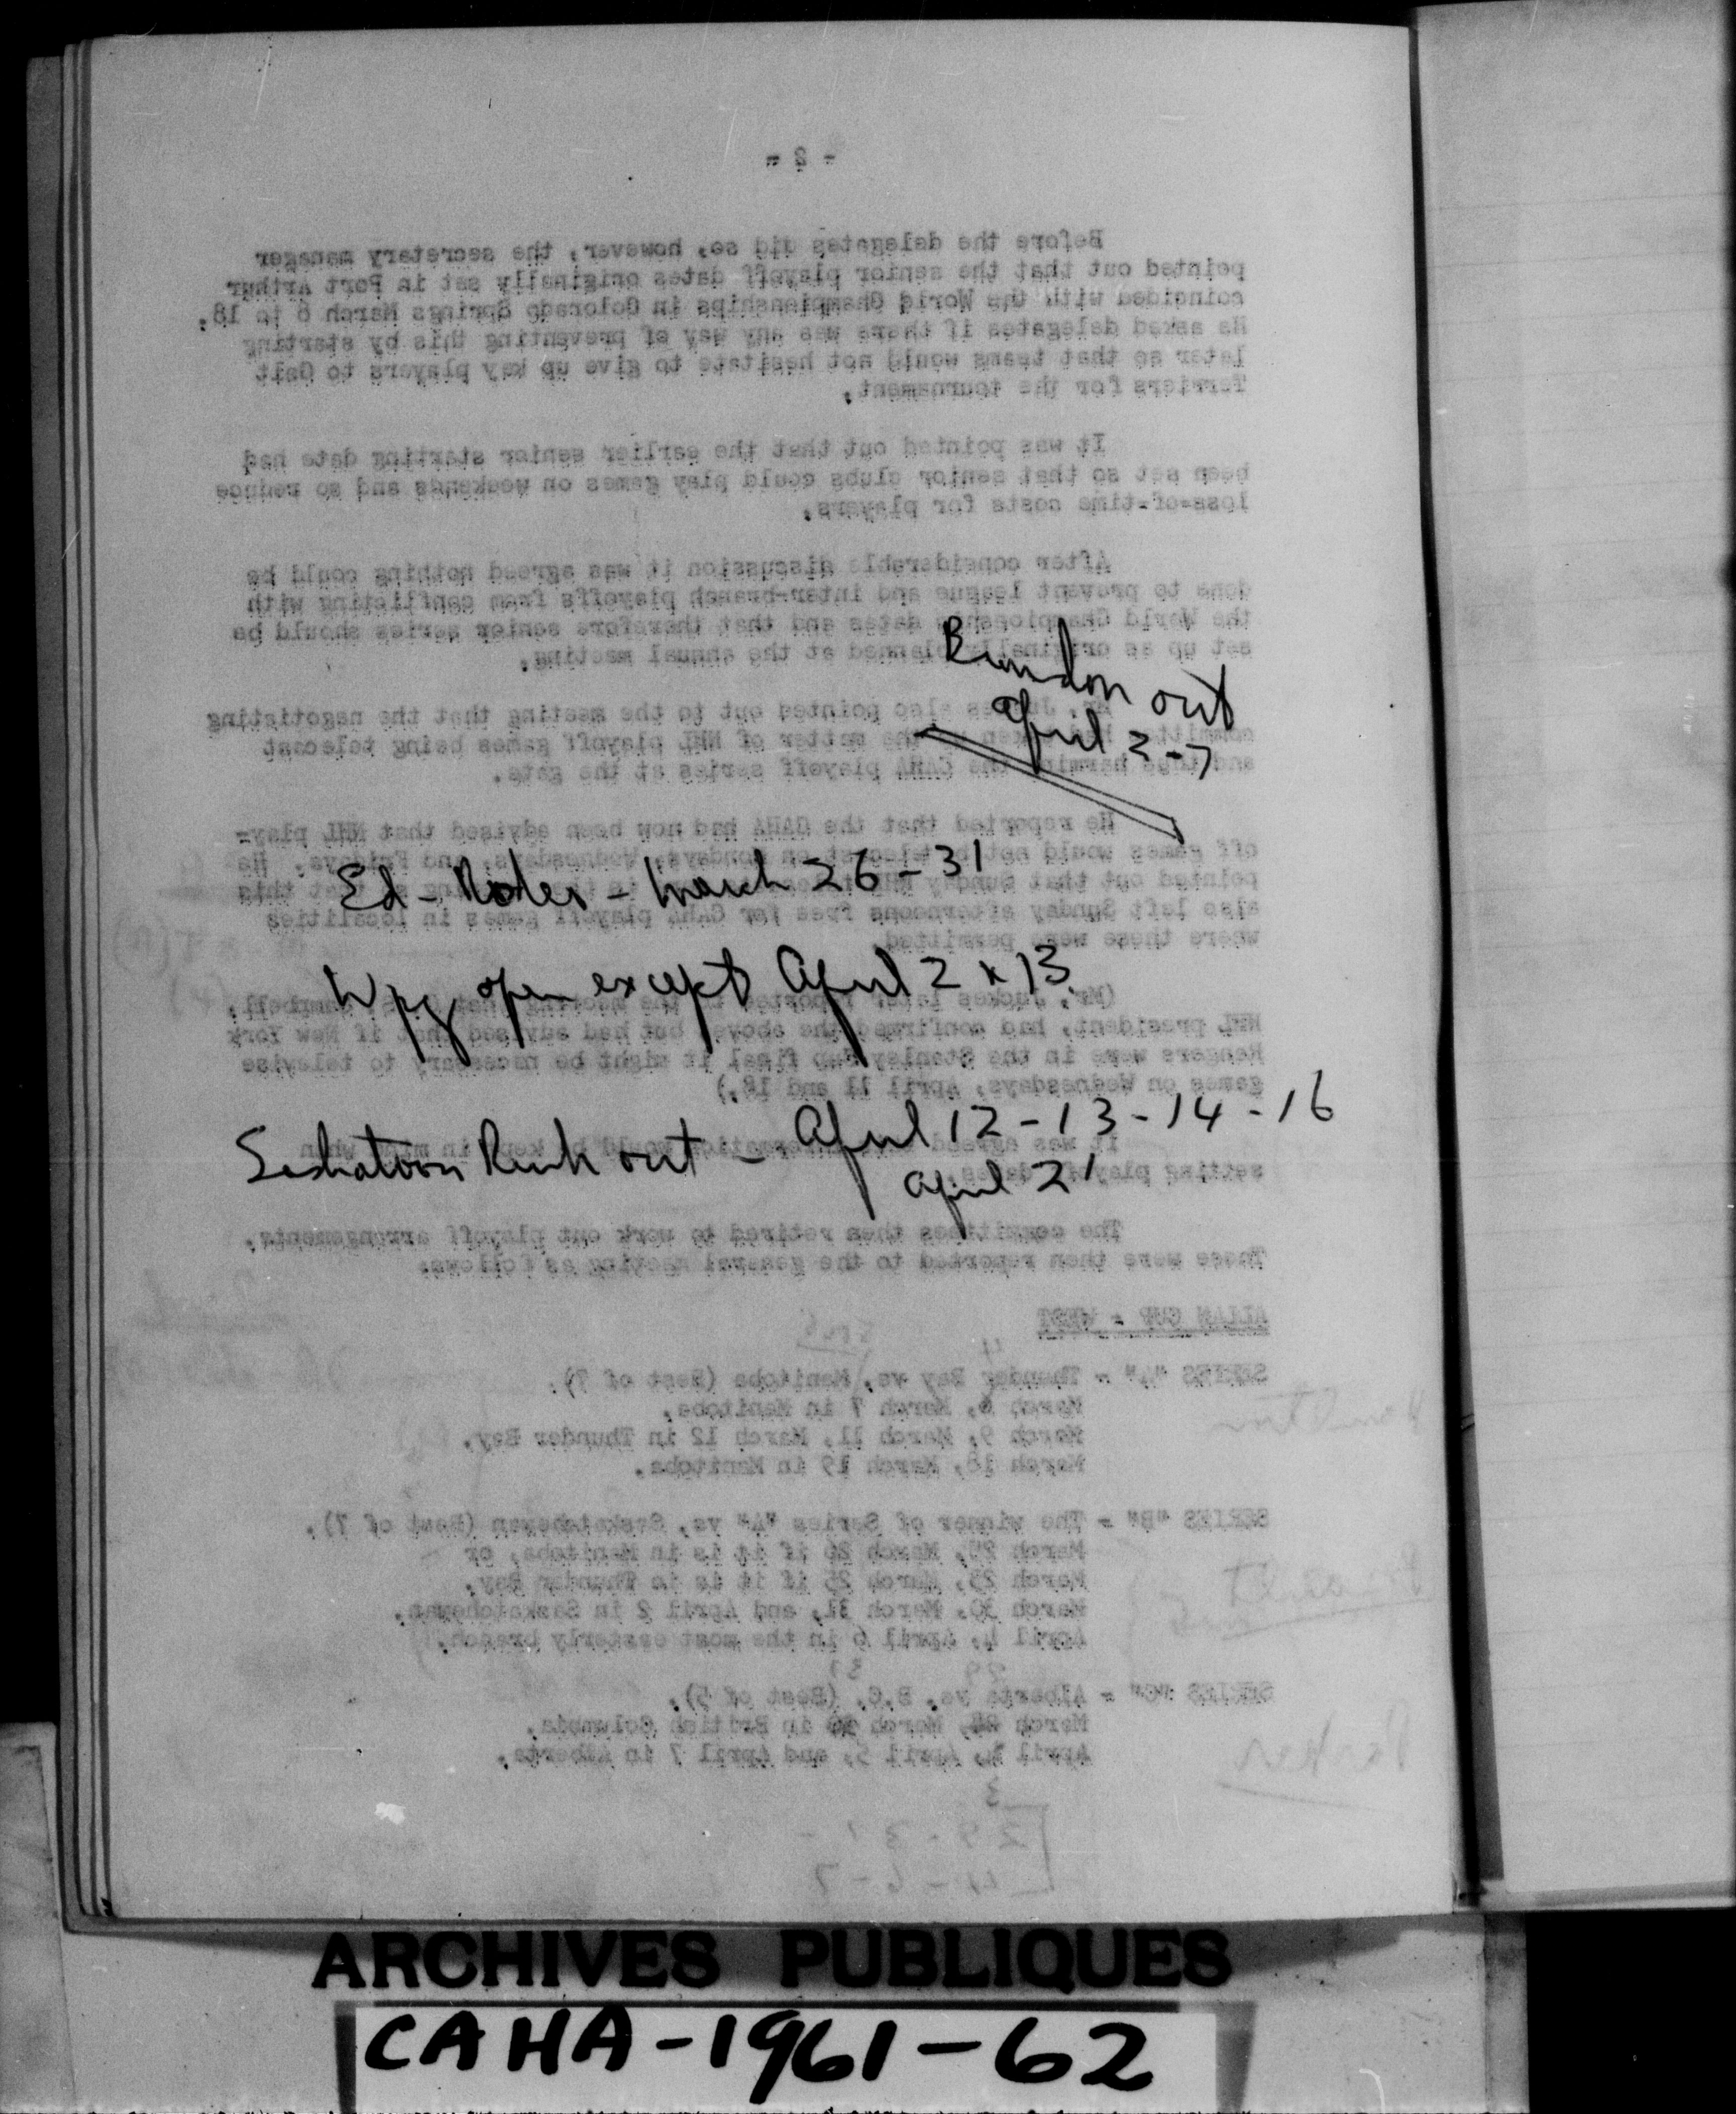 - 2 -
Before the delegates did so, however, the secretary manager
pointed out that the senior playoff dates originally set in Port Arthur
coincided with the World Championships in Colorado Springs March 8 to 18.
He asked delegates if there was any way of preventing this by starting
later so that teams would not hesitate to give up key players to Galt
Terriers for the tournament.
It was pointed out that the earlier senior starting date had
been set so that senior clubs could play games on weekends and so reduce
loss-of-time costs for players.
After considerable discussion it was agreed nothing could be
done to prevent league and inter-branch playoffs from conflicting with
the World Championship dates and that therefore senior series should be
set up as originally planned at the annual meeting.
Brandon out
April 2-7
Mr. Juckes also pointed out to the meeting that the negotiating
the matter of NHL playoff games being telecast
and thus harming the CAHA playoff series at the gate.
He reported that the CAHA had now been advised that NHL play-
off games would not be telecast on Mondays, Wednesdays, and Fridays. He
Ed - Rodeo - March 26 - 31
pointed out that Sunday this
also left Sunday afternoons free for CAHA playoff games in localities
where these were permitted
Wpg open except April 2 & 13
(Mr. Juckes later reported to the meeting that Campbell,
NHL president, had confirmed the above, but had advised that if New York
Rangers were in the Stanley Cup final it might be necessary to televise
games on Wednesdays, April 11 and 18.)
Saskatoon Rink out - April 12 - 13 - 14 - 16
April 21
It was agreed information would be kept in mind when
setting playoff dates.
The committees then retired to work out playoff arrangements.
These were then reported to the general meeting as follows:
ALLAN CUP - WEST
SERIES "A" - Thunder Bay vs. Manitoba (Best of 7).
March 6, March 7 in Manitoba.
March 9, March 11, March 12 in Thunder Bay.
March 18, March 19 in Manitoba.
SERIES "B" - The winner of Series "A" vs. Saskatchewan (Best of 7).
March 26 if it is in Manitoba, or
March 23, March 25 if it is in Thunder Bay.
March 30, March 31, and April 2 in Saskatchewan.
April 4, April 6 in the most easterly branch.
29 31
SERIES "C" - Alberta vs. B.C. (Best of 5).
March March in British Columbia.
April April 5, and April 7 in Alberta.
3
29 - 31 -
4 - 6 - 7
ARCHIVES PUBLIQUES
CAHA-1961-62